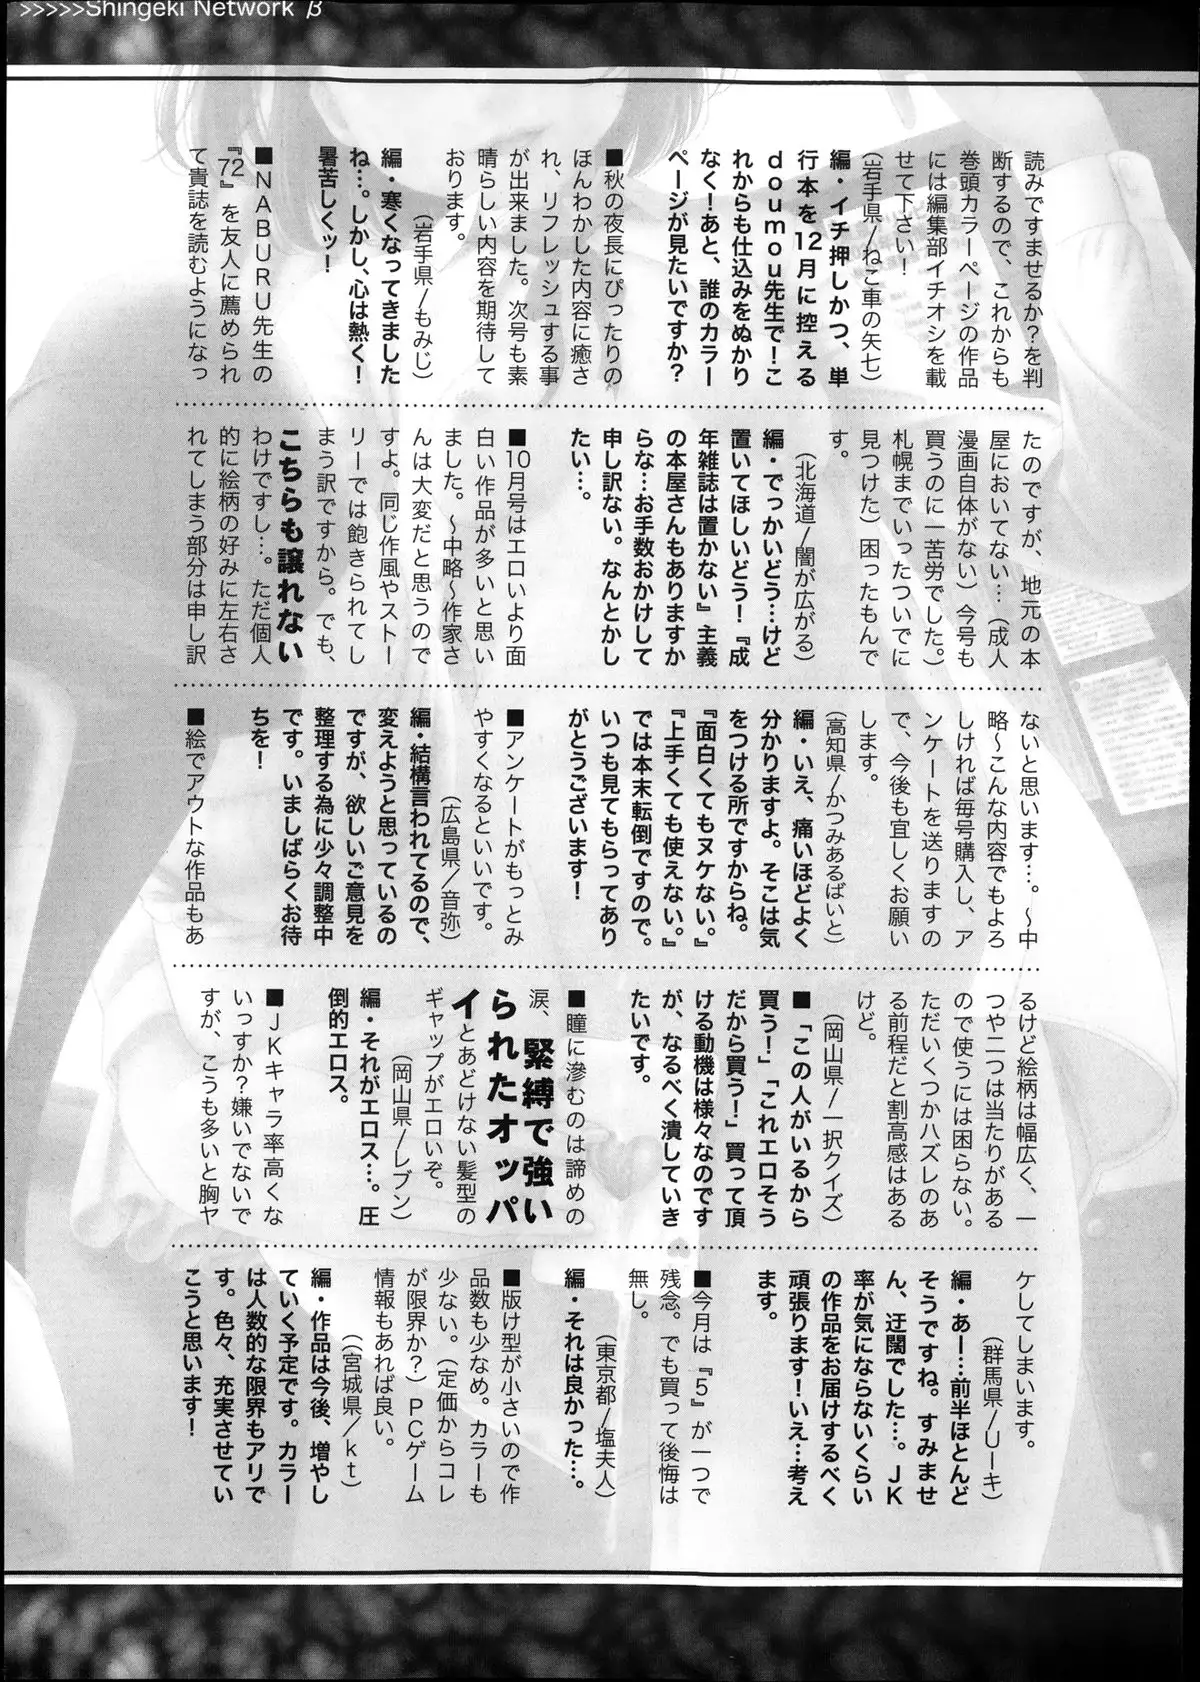 >>>>>Shingeki Network β
読みですませるか?を判
断するので、これからも
巻頭カラーページの作品
には編集部イチオシを載
せて下さい!
（岩手県/ねこ車の矢七）
編・イチ押しかつ、単
行本を12月に控える
doumou先生で!こ
れからも仕込みをぬかり
なく!あと、誰のカラー
ページが見たいですか?
■秋の夜長にぴったりの
ほんわかした内容に癒さ
れ、リフレッシュする事
が出来ました。次号も素
晴らしい内容を期待して
おります。
（岩手県/もみじ）
編・寒くなってきました
ね…。しかし、心は熱く!
暑苦しくッ!
■NABURU先生の
『72』を友人に薦められ
て貴誌を読むようになっ
たのですが、地元の本
屋においてない…（成人
漫画自体がない）今号も
買うのに一苦労でした。（
札幌までいったついでに
見つけた）困ったもんで
す。
（北海道/闇が広がる）
編・でっかいどう…けど
置いてほしいどう!『成
年雑誌は置かない』主義
の本屋さんもありますか
らな…お手数おかけして
申し訳ない。なんとかし
たい…。
■10月号はエロいより面
白い作品が多いと思い
ました。～中略～作家さ
んは大変だと思うので
すよ。同じ作風やストー
リーでは飽きられてし
まう訳ですから。でも、
こちらも譲れない
わけですし…。ただ個人
的に絵柄の好みに左右さ
れてしまう部分は申し訳
ないと思います…。～中
略～こんな内容でもよろ
しければ毎号購入し、ア
ンケートを送りますの
で、今後も宜しくお願い
します。
（高知県/かつみあるばいと）
編・いえ、痛いほどよく
分かりますよ。そこは気
をつける所ですからね。
『面白くてもヌケない。』
『上手くても使えない。』
では本末転倒ですので。
いつも見てもらってあり
がとうございます!
■アンケートがもっとみ
やすくなるといいです。
（広島県/音弥）
編・結構言われてるので、
変えようと思っているの
ですが、欲しいご意見を
整理する為に少々調整中
です。いましばらくお待
ちを!
■絵でアウトな作品もあ
るけど絵柄は幅広く、一
つや二つは当たりがある
ので使うには困らない。
ただいくつかハズレのあ
る前程だと割高感はある
けど。
（岡山県/一択クイズ）
■「この人がいるから
買う!」「これエロそう
だから買う!」買って頂
ける動機は様々なのです
が、なるべく潰していき
たいです。
■瞳に滲むのは諦めの
涙、緊縛で強い
られたオッパ
イとあどけない髪型の
ギャップがエロいぞ。
（岡山県/レブン）
編・それがエロス…。圧
倒的エロス。
■JKキャラ率高くな
いっすか?嫌いでないで
すが、こうも多いと胸ヤ
ケしてしまいます。
（群馬県/Uーキ）
編・あー…前半ほとんど
そうですね。すみませ
ん、迂闊でした…。JK
率が気にならないくらい
の作品をお届けするべく
頑張ります!いえ…考え
ます。
■今月は『5』が一つで
残念。でも買って後悔は
無し。
（東京都/塩夫人）
編・それは良かった…。
■版け型が小さいので作
品数も少なめ。カラーも
少ない。（定価からコレ
が限界か?）PCゲーム
情報もあれば良い。
（宮城県/kt）
編・作品は今後、増やし
ていく予定です。カラー
は人数的な限界もアリで
す。色々、充実させてい
こうと思います!